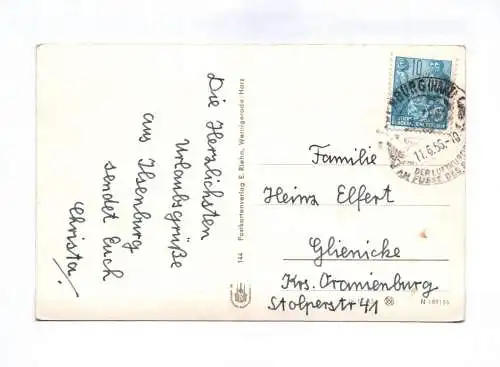 Die Herzlichsten
Urlaubsgrüße
aus Ilsenburg
sendet Euch
Christa.
144 Postkartenverlag E. Riehn, Wernigerode/Harz
10
BURG (HARZ)
17.6.56.-10
DER LUFTKUR
AM FUSSE DES
Familie
Heinz Elfert
Glienicke
Krs. Oranienburg
Stolperstr 41